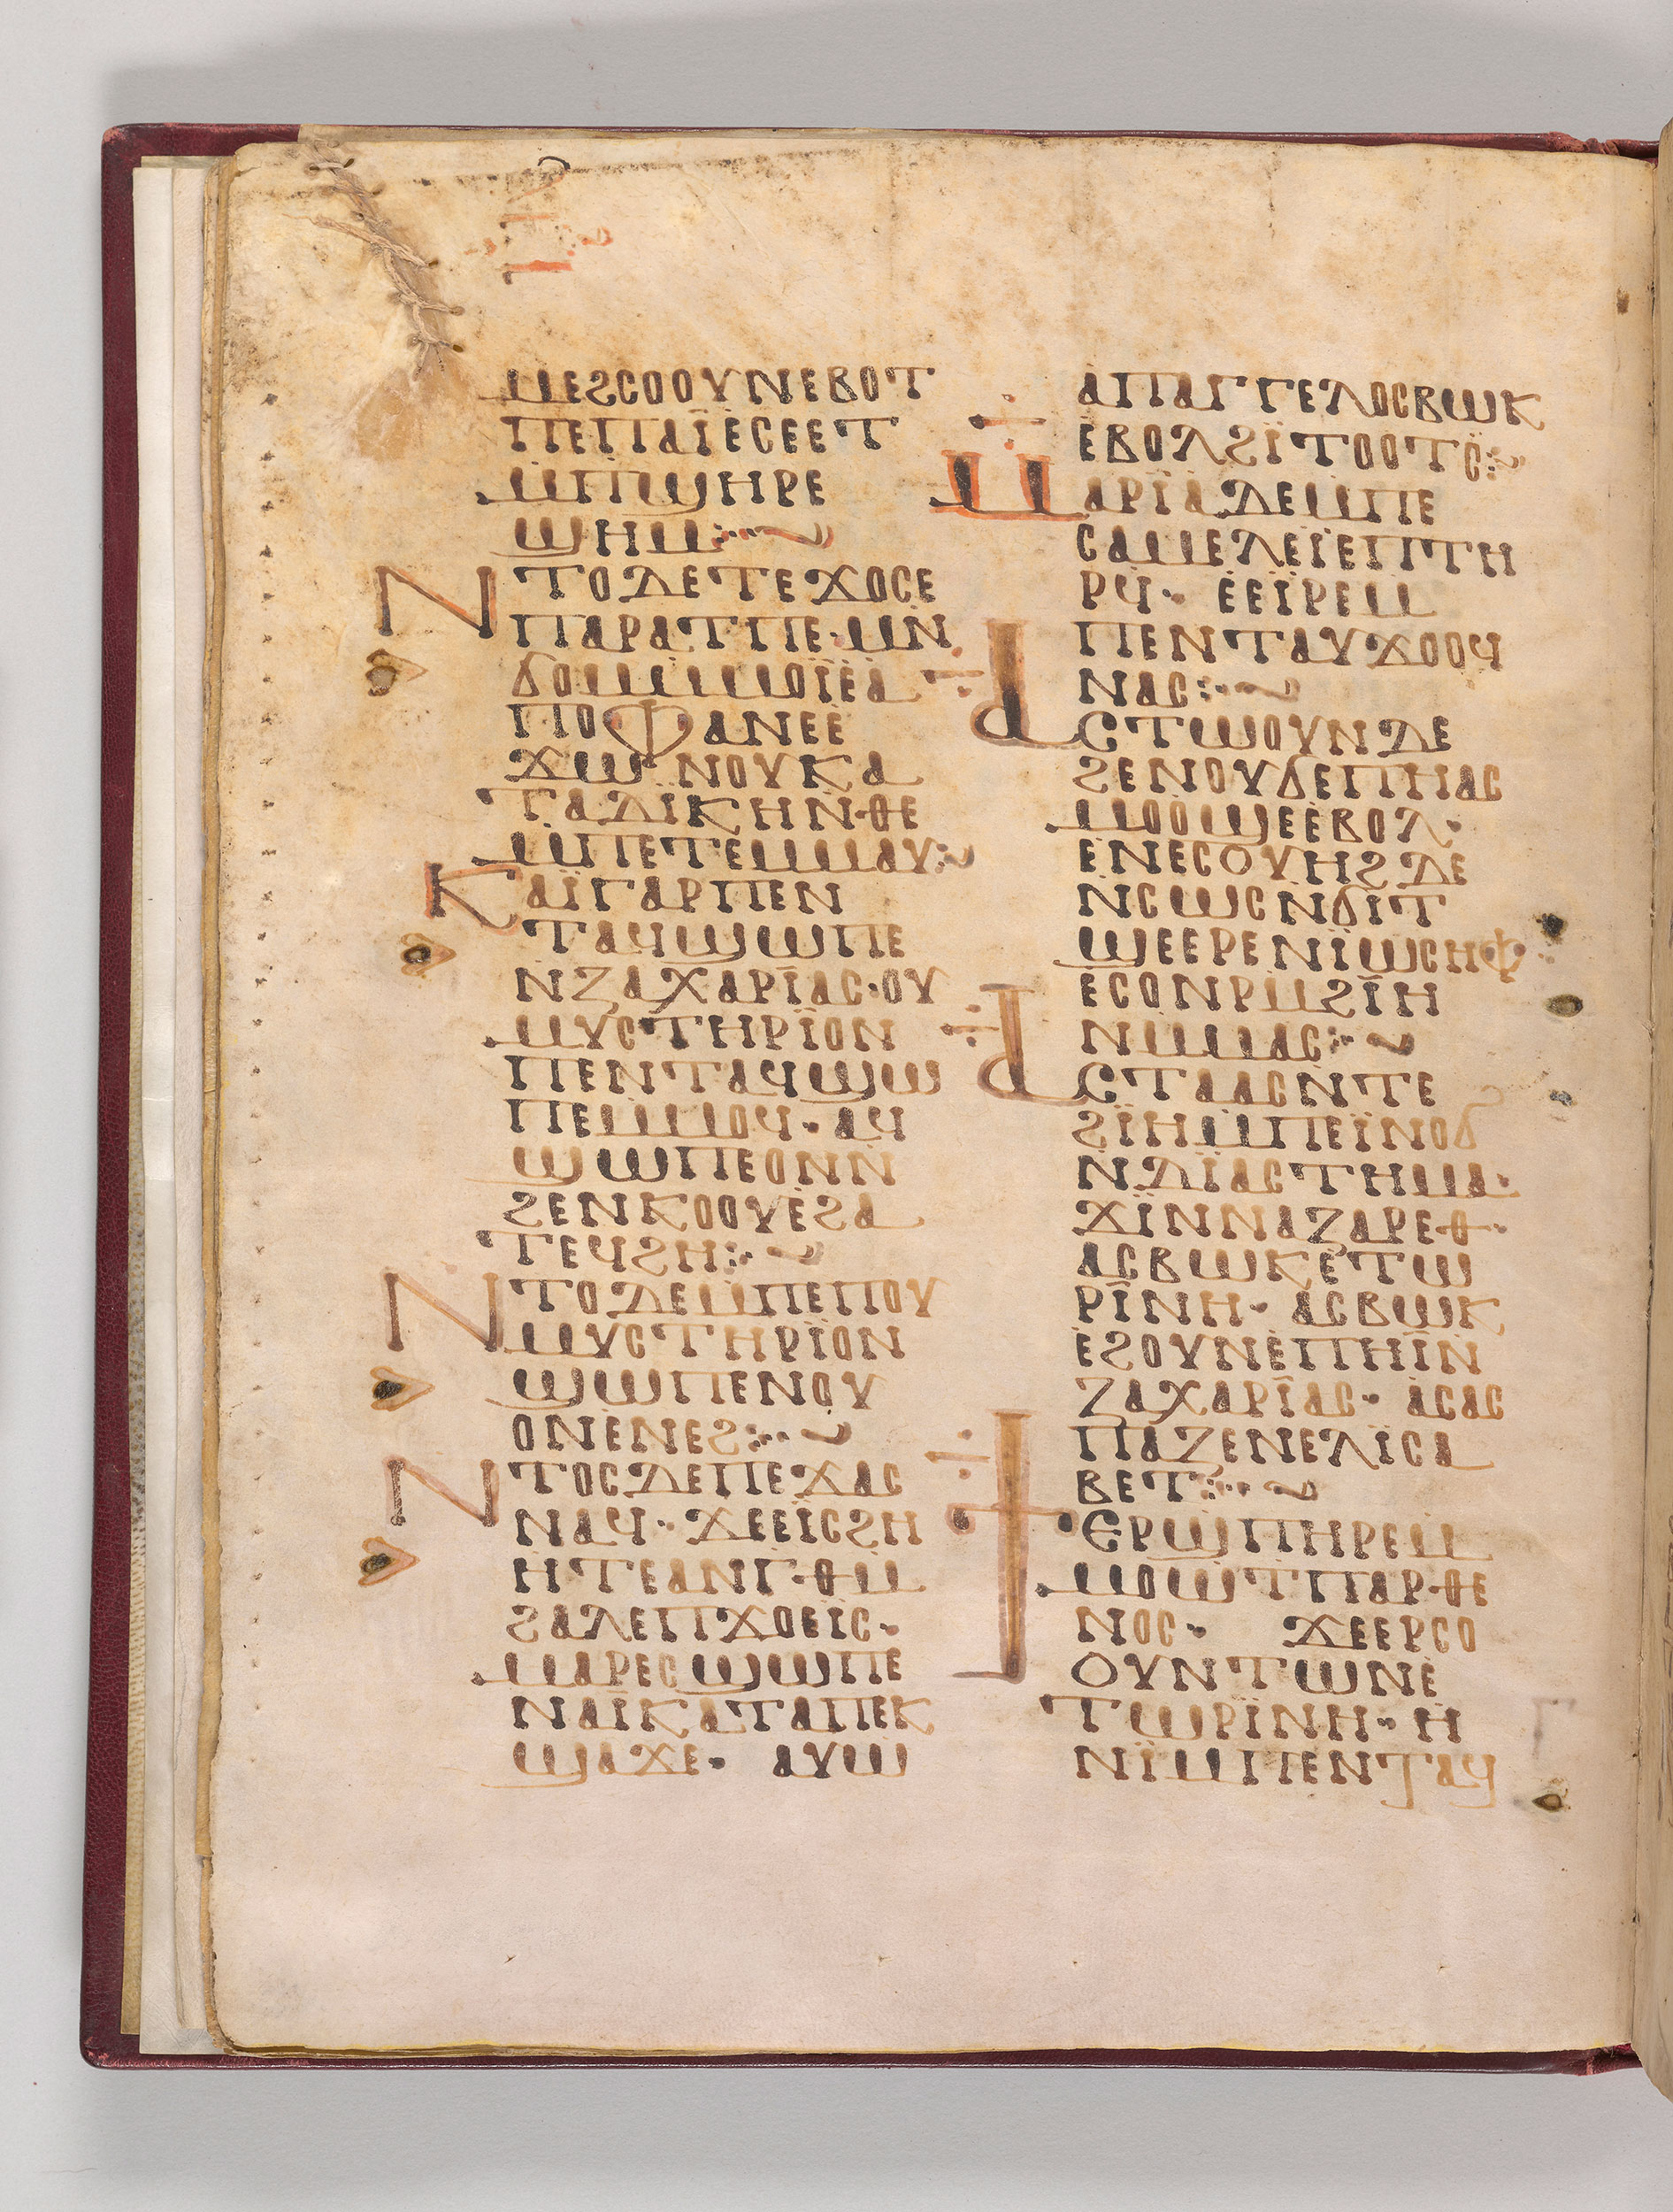 ⲙⲉϩⲥⲟⲟⲩⲛⲉⲃⲟⲧ
ⲡⲉⲡⲁⲓ̈ⲉⲥⲉⲉⲧ
ⲙ̇ⲡϣⲏⲣⲉ
ϣⲏⲙ⁘~
ⲛⲧⲟⲇⲉⲧⲉϫⲟⲥⲉ
ⲡⲁⲣⲁⲧⲡⲉ·ⲙⲛ
ϭⲟⲙⲙ̇ⲙⲟⲓ̈ⲉ̇ⲁ
ⲡⲟⲫⲁⲛⲉⲉ̇
ϫⲱ ⲛⲟⲩⲕⲁ
ⲧⲁⲇⲓ̈ⲕⲏⲛ·ⲑⲉ
ⲙ̇ⲡⲉⲧⲉⲙⲙⲁⲩ⁘~
ⲕⲁⲓ̈ⲅⲁⲣⲡⲉⲛ
ⲧⲁϥϣⲱⲡⲉ
ⲛ̇ⲍⲁⲭⲁⲣⲓ̈ⲁⲥ·ⲟⲩ
ⲙⲩⲥⲧⲏⲣⲓ̈ⲟⲛ
ⲡⲉⲛⲧⲁϥϣⲱ
ⲡⲉⲙⲙⲟϥ·ⲁϥ
ϣⲱⲡⲉⲟⲛⲛ̇
ϩⲉⲛⲕⲟⲟⲩⲉ̇ϩⲁ
ⲧⲉϥϩⲏ⁘~
ⲛⲧⲟⲇⲉⲙⲡⲉⲡⲟⲩ
ⲙⲩⲥⲧⲏⲣⲓ̈ⲟⲛ
ϣⲱⲡⲉⲛⲟⲩ
ⲟⲛⲉ̇ⲛⲉϩ⁘~
ⲛⲧⲟⲥⲇⲉⲡⲉϫⲁⲥ
ⲛⲁϥ· ϫⲉⲉⲓ̈ⲥϩⲏ
ⲏⲧⲉⲁⲛⲅ·ⲑⲙ
ϩⲁⲗⲉⲡϫⲟⲉⲓ̈ⲥ·
ⲙⲁⲣⲉⲥϣⲱⲡⲉ
ⲛⲁⲓ̈ⲕⲁⲧⲁⲡⲉⲕ
ϣⲁϫⲉ· ⲁⲩⲱ
ⲁⲡⲁⲅⲅⲉⲗⲟⲥⲃⲱⲕ
ⲉⲃⲟⲗϩⲓ̈ⲧⲟⲟⲧⲥ⁘~
ⲙⲁⲣⲓ̈ⲁⲇⲉⲙⲡⲉ
ⲥⲁⲙⲉⲗⲉⲓ̈ⲉⲡⲧⲏ
ⲣϥ· ⲉ̇ⲉⲓ̈ⲣⲉⲙ
ⲡⲉⲛⲧⲁⲩϫⲟⲟϥ
ⲛⲁⲥ⁘~
ⲁⲥⲧⲱⲟⲩⲛⲇⲉ
ϩⲉⲛⲟⲩϭⲉⲡⲏⲁⲥ
ⲙⲟⲟϣⲉⲉⲃⲟⲗ·
ⲉⲛⲉⲥⲟⲩⲏϩⲇⲉ
ⲛ̇ⲥⲱⲥⲛ̇ϭⲓⲧ
ϣⲉⲉⲣⲉⲛⲓ̈ⲱⲥⲏⲫ
ⲉⲥⲟⲛⲣⲙϩⲓ̈ⲏ
ⲛⲙⲙⲁⲥ⁘~
ⲁⲥⲧⲁⲁⲥⲛ̇ⲧⲉ
ϩⲓ̈ⲏⲙⲡⲉⲓ̈ⲛⲟϭ
ⲛ̇ⲇⲓ̈ⲁⲥⲧⲏⲙⲁ·
ϫⲓ̈ⲛⲛⲁⲍⲁⲣⲉⲑ·
ⲁⲥⲃⲱⲕⲉ̇ⲧⲱ
ⲣⲓ̈ⲛⲏ· ⲁⲥⲃⲱⲕ
ⲉ̇ϩⲟⲩⲛⲉ̇ⲡⲏⲓ̈ⲛ
ⲍⲁⲭⲁⲣⲓ̈ⲁⲥ· ⲁⲥⲁⲥ
ⲡⲁⲍⲉⲛⲉⲗⲓ̈ⲥⲁ
ⲃⲉⲧ⁘~
ϯⲉⲣϣⲡⲏⲣⲉⲙ
ⲙⲟⲱⲧⲡⲁⲣ·ⲑⲉ
ⲛⲟⲥ· ϫⲉⲉⲣⲥⲟ
ⲟⲩⲛⲧⲱⲛⲉ̇
ⲧⲱⲣⲓ̈ⲛⲏ· ⲏ
ⲛⲓ̈ⲙⲡⲉⲛⲧⲁϥ